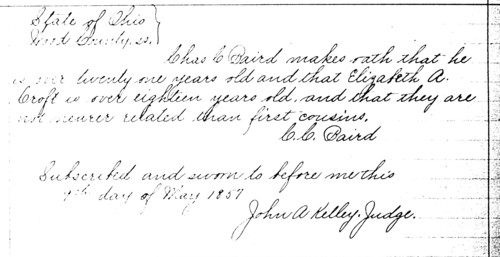 State of Ohio
Wood County, ss.
Chas C Baird makes oath that he
is over twenty one years old and that Elizabeth A.
Croft is over eighteen years old, and that they are
not nearer related than first cousins.
C.C. Baird
Subscribed and sworn to before me this
9th day of May 1857
John A Kelley, Judge.